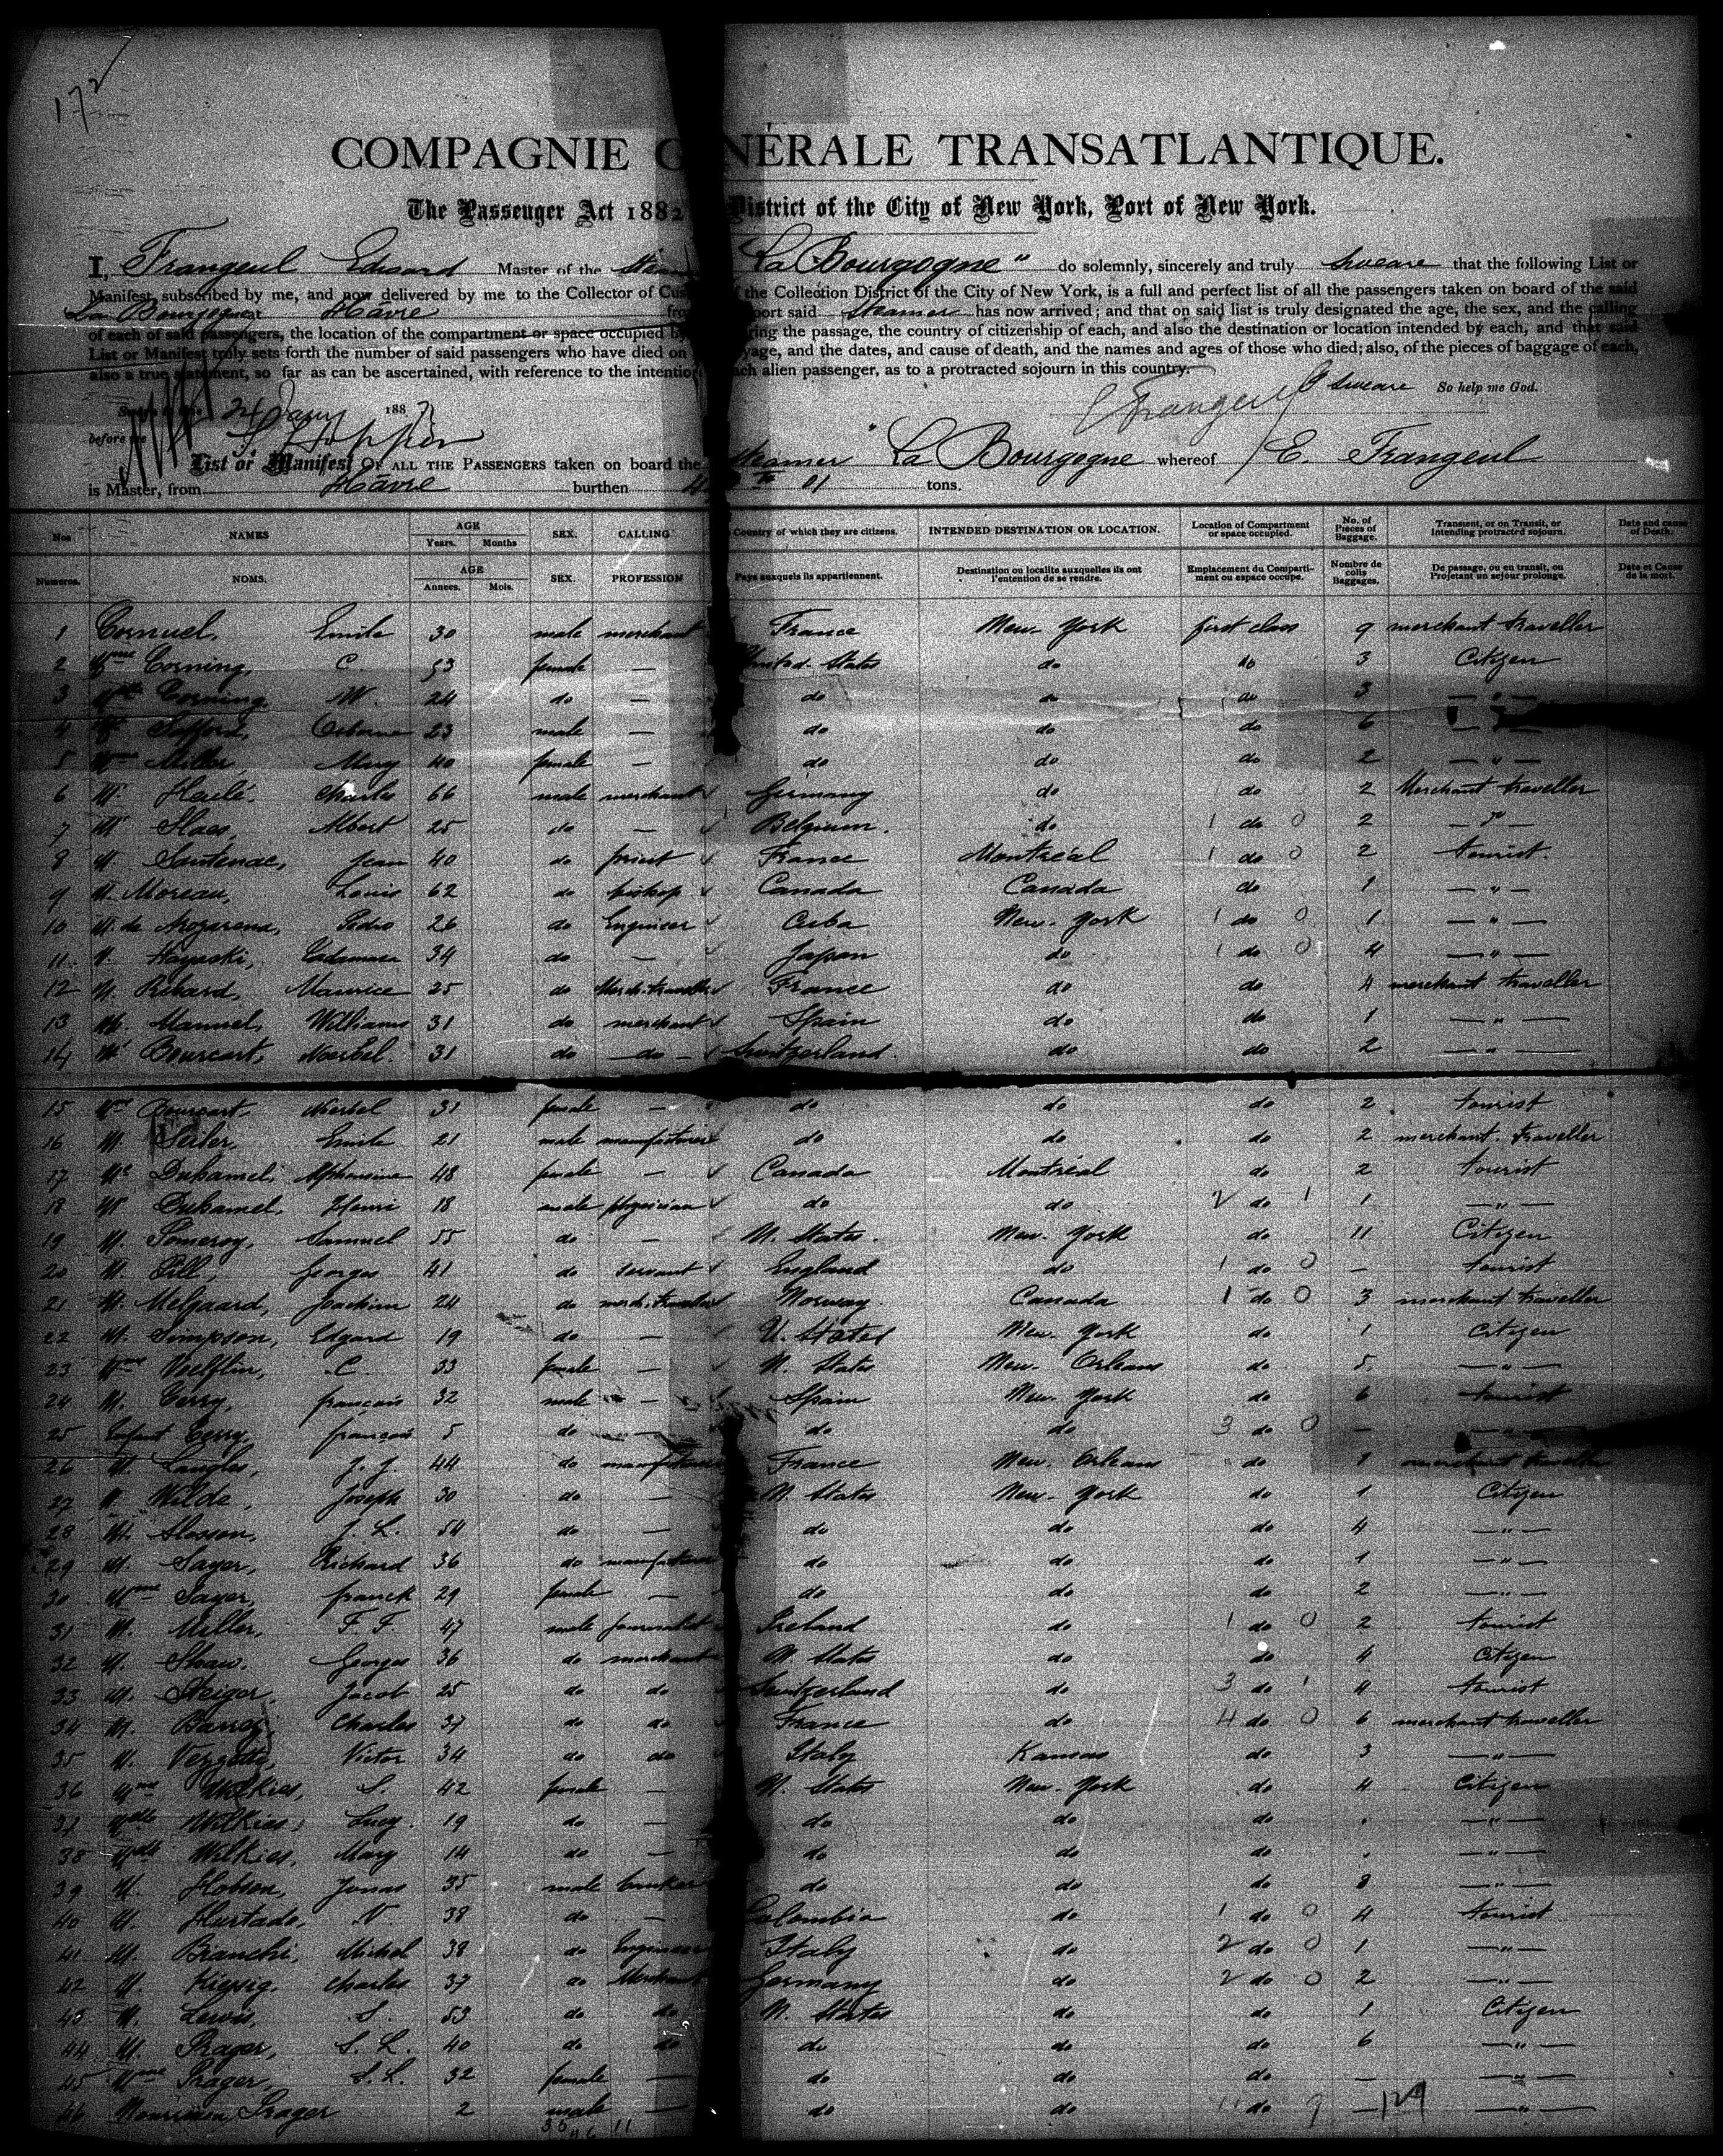 172
COMPAGNIE G NÉRALE TRANSATLANTIQUE.
The Passenger Act 1882 District of the City of New York, Port of New York.
I, Frangeul Edouard Master of the Steam La Bourgogne" do solemnly, sincerely and truly sweare that the following List or
Manifest, subscribed by me, and now delivered by me to the Collector of Cus the Collection District of the City of New York, is a full and perfect list of all the passengers taken on board of the said
La Bourgogne at Havre from port said Steamer has now arrived; and that on said list is truly designated the age, the sex, and the calling
of each of said passengers, the location of the compartment or space occupied by ring the passage, the country of citizenship of each, and also the destination or location intended by each, and that said
List or Manifest truly sets forth the number of said passengers who have died on yage, and the dates, and cause of death, and the names and ages of those who died; also, of the pieces of baggage of each,
also a true statement, so far as can be ascertained, with reference to the intention ach alien passenger, as to a protracted sojourn in this country.
E Frangeul I sweare So help me God.
24 Jany 188
before me
List or Manifest OF ALL THE PASSENGERS taken on board the Steamer "La Bourgogne whereof E. Frangeul
is Master, from Havre burthen tons.
Nos NAMES AGE Years. Months SEX. CALLING Country of which they are citizens. INTENDED DESTINATION OR LOCATION. Location of Compartment or space occupied. No. of Pieces of Baggage. Transient, or on Transit, or Intending protracted sojourn. Date and cause of Death.
Numeros. NOMS. AGE Annees. Mois. SEX. PROFESSION Pays auxquels ils appartiennent. Destination ou localite auxquelles ils ont l'entention de se rendre. Emplacement du Comparti-ment ou espace occupe. Nombre de colis Baggages. De passage, ou en transit, ou Projetant un sejour prolonge. Date et Cause de la mort.
1 Cornuel, Emile 30 male merchant France New-York first class 9 merchant traveller
2 Mme Corning, C. 53 female — United-States do do 3 Citizen
3 Mlle Corning W. 24 do — do do do 3 — " —
4 Mr Safford, Osborne 23 male — do do do 6 — " —
5 Mme Miller, Mary 40 female — do do do 2 — " —
6 Mr Charles 66 male merchant Germany do do 2 Merchant traveller
7 Mr Haes, Albert 25 do — Belgium. do 1 do 0 2 — " —
8 M. Santenac, Jean 40 do priest France Montréal 1 do 0 2 tourist.
9 M. Moreau, Louis 62 do bishop Canada Canada do 1 — " —
10 M. de Pedro 26 do Engineer Cuba New-York 1 do 0 1 — " —
11 M. Hayaski, Tadamasa 34 do — Japan do 1 do 0 4 — " —
12 M. Ribard, Maurice 25 do Merch. traveller France do do 4 merchant traveller
13 M. Manuel, Williams 31 do merchant Spain do do 1 — " —
14 Mr Bourcart, Noerbel. 31 do — do — Switzerland. do do 2 — " —
15 Mme Bourcart, Noerbel 31 female — do do do 2 tourist
16 M. Seiler, Emile 21 male manufacturer do do do 2 merchant traveller
17 Me Duhamel, Alphonsine 48 female — Canada Montréal do 2 tourist
18 Mr Duhamel, Henri 18 male physician do do 2 do 1 1 — " —
19 M. Pomeroy, Samuel 55 do — U. States. New-York do 11 Citizen
20 M. Pill, Georges 41 do servant England do 1 do 0 — tourist
21 M. Melgaard, Joachim 24 do merch. traveller Norway. Canada 1 do 0 3 merchant traveller
22 M. Simpson, Edgard 19 do — U. States New-York do 1 Citizen
23 Mme Voelflin, C. 33 female — U. States New-Orleans do 5 — " —
24 M. Cerry, françois 32 male — Spain New-York do 6 tourist
25 Enfant Cerry, françois 5 do — do do 3 do 0 — — " —
26 M. Langles, J. J. 44 do manufacturer France New-Orleans do 1 merchant traveller
27 M. Wilde, Joseph 30 do — U. States New-York do 1 Citizen
28 M. Slosson, J. L. 54 do — do do do 4 — " —
29 M. Sayer, Richard 36 do manufacturer do do do 1 — " —
30 Mme Sayer, franck 29 female — do do do 2 — " —
31 M. Miller, F. F. 47 male journalist Ireland do 1 do 0 2 tourist
32 M. Shaw. Georges 36 do merchant U. States do do 4 Citizen
33 M. Steiger, Jacob 25 do do Switzerland do 3 do 1 4 tourist
34 M. Charles 37 do do France do 4 do 0 6 merchant traveller
35 M. Vezzetti, Victor 34 do do Italy Kansas do 3 — " —
36 Mme Wilkies, S. 42 female — U. States New-York do 4 Citizen
37 Mlle Wilkies, Lucy. 19 do — do do do . — " —
38 Mlle Wilkies, Mary 14 do — do do do . — " —
39 M. Hobson, Jonas 35 male banker do do do 8 — " —
40 M. Hurtado, N. 38 do — Colombia do 1 do 0 4 tourist
41 M. Bianchi, Michel 38 do Engineer Italy do 2 do 0 1 — " —
42 M. Kiepsig, Charles 37 do Merchant Germany do 2 do 0 2 — " —
43 M. Lewis, S. 53 do do U. States do do 1 Citizen
44 M. Prager, S. L. 40 do do do do do 6 — " —
45 Mme Prager, S. L. 32 female — do do do — — " —
46 Prager 2 male — do do 11 do 9 — 129 — " —